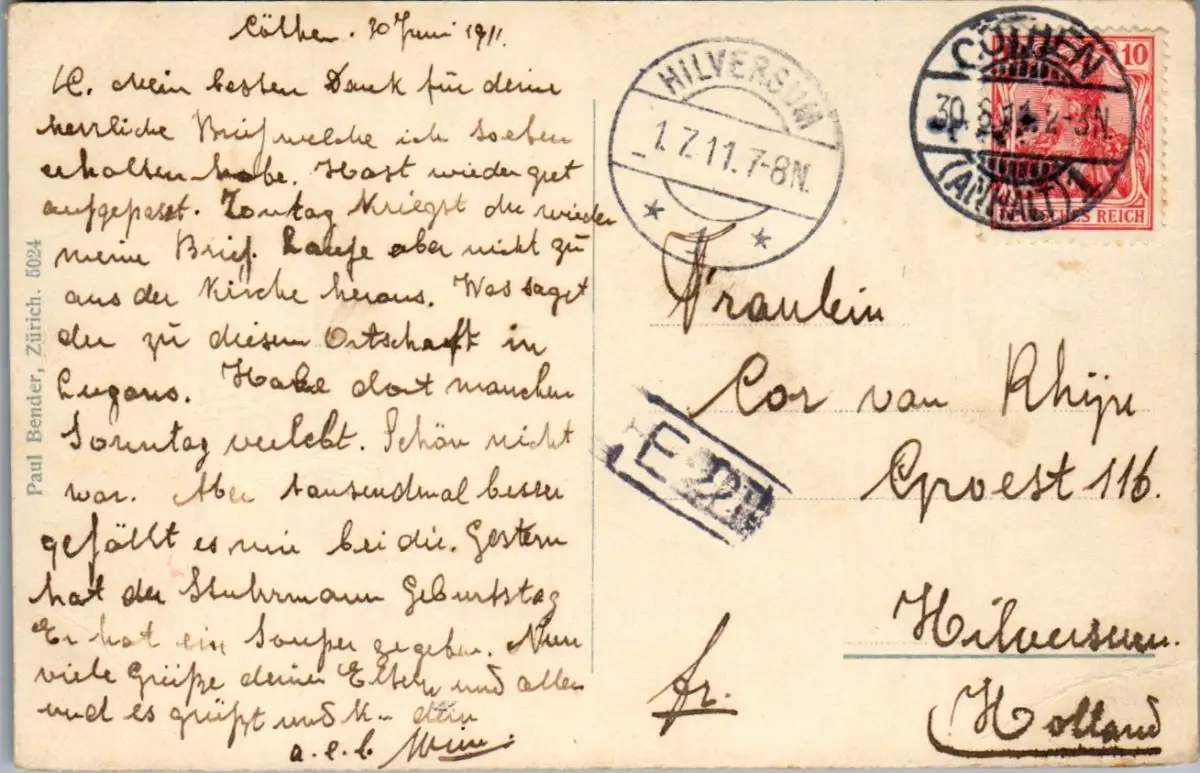 Cöthen. 30 Juni 1911.
L. Mein besten Dank für deine
herrliche Brief welche ich soeben
erhalten habe. Hast wieder gut
aufgepasst. Zontag kriegst du wieder
meine Brief. Laufe aber nicht zu
aus der Kirche heraus. Was sagst
du zu diesem Ortschaft in
Lugano. Habe dort manchen
Sonntag verlebt. Schön nicht
war. Aber tausendmal besser
gefällt es mir bei dir. Gestern
hat der Stuhrmann Geburtstag
Er hat ein Souper gegeben. Nun
viele Grüße deine Eltern und allen
und es grüßt und k. dein
a. e. l. Wim.
Paul Bender, Zürich. 5024
HILVERSUM
1.7.11.7-8N.
CÖTHEN
30.6.11.2-3N.
(ANHALT) 1
10
DEUTSCHES REICH
Fraulein
Cor van Rhijn
Groest 116.
Hilversum.
fr.
Holland
E 22